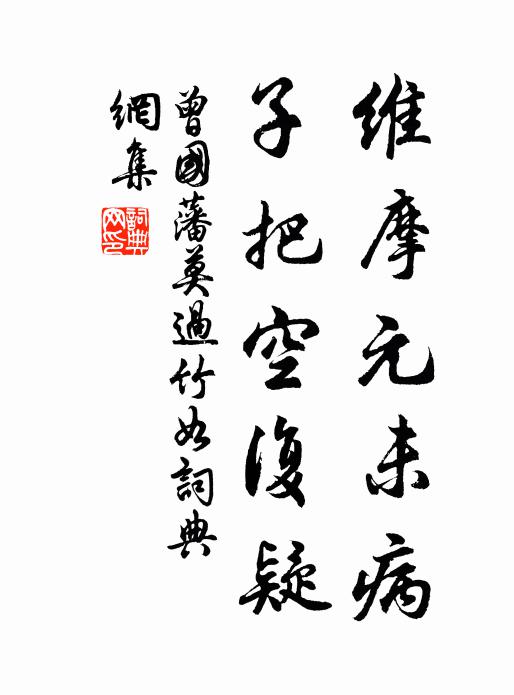 維摩元未病
子把空復疑
曾國藩莫過竹如詞典
網集
詞典
网印